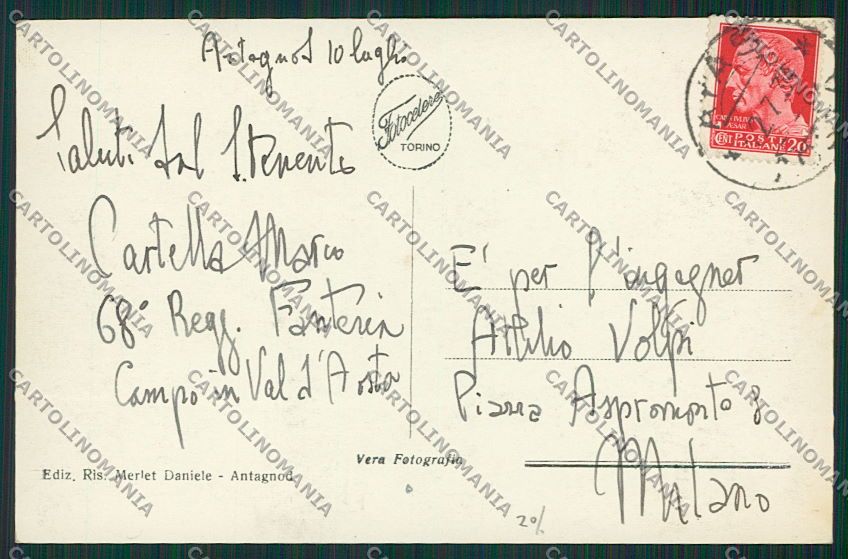 Antagnod 10 luglio
Saluti dal S.Tenente
Cartella Marco
68° Regg. Fanteria
Campo in Val d'Aosta
Ediz. Ris. Merlet Daniele - Antagnod
Fotocelere
TORINO
Vera Fotografia
CENT POSTE 20
ITALIANE
E' per l'ingegner
Attilio Volpi
Piazza Aspromonte 8
Milano
20/
CARTOLINOMANIA